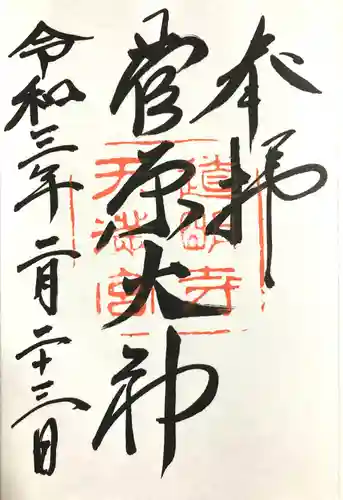 奉拝
菅原大神
令和三年二月二十三日
道明寺
天満宮